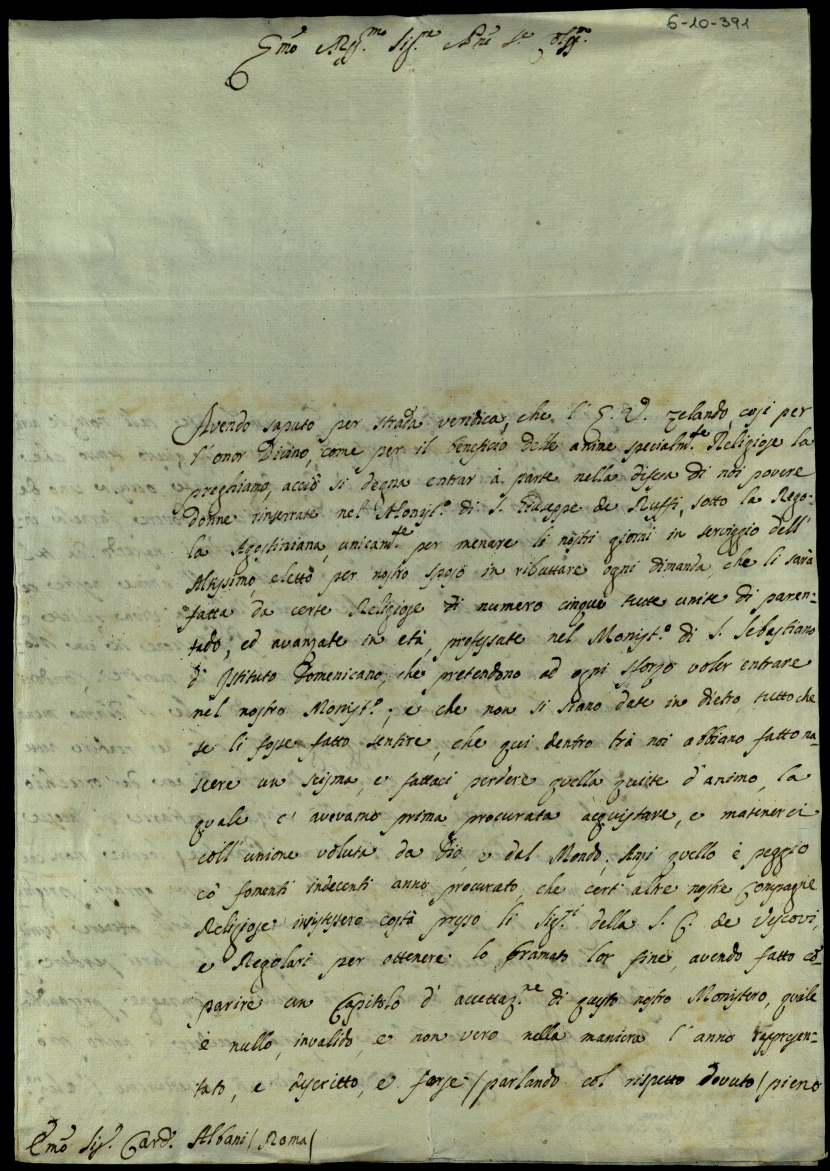 6-10-391
Emo Rev.mo Sig.re Pne
Avendo saputo per strada veridica, che l'E. V. zelando così per
l'onor Divino, come per il beneficio delle anime specialm.te Religiose la
preghiamo, acciò si degna entrar à parte nella difesa di noi povere
donne rinserrate nel Monist.o di S. Giuseppe de Ruffi, sotto la Rego-
la Agostiniana, unicam.te per menare li nostri giorni in serviggio dell'
Altissimo, eletto per nostro sposo in ributtare ogni dimanda, che li sarà
fatta da certe Religiose di numero cinque tutte unite di paren-
tado, ed avanzate in età, professate nel Monist.o di S. Sebastiano
d'Istituto Domenicano, che pretendono ad ogni sforzo voler entrare
nel nostro Monist.o; e che non si siano date in dietro tutto che
se li fosse fatto sentire, che qui dentro trà noi abbiano fatto na-
scere un scisma, e fattaci perdere quella quiete d'animo, la
quale c'avevamo prima procurata acquistare, e matenerci
coll'unione voluta da Dio, e dal Mondo. Anzi quello è peggio
cō fomenti indecenti anno procurato, che certi altre nostre Compagne
Religiose insistessero costà presso li Sig.ri della S. C. de Vescovi,
e Regolari per ottenere lo bramato lor fine, avendo fatto cō-
parire un Capitolo d'accettaz.ne di questo nostro Monistero, quale
è nullo, invalido, e non vero nella maniera l'anno rappresen-
tato, e descritto, e forse /parlando col rispetto dovuto/ pieno
Emo Sig.r Card. Albani /Roma/